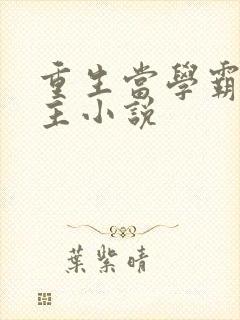 重生當學霸
主小說
葉紫晴